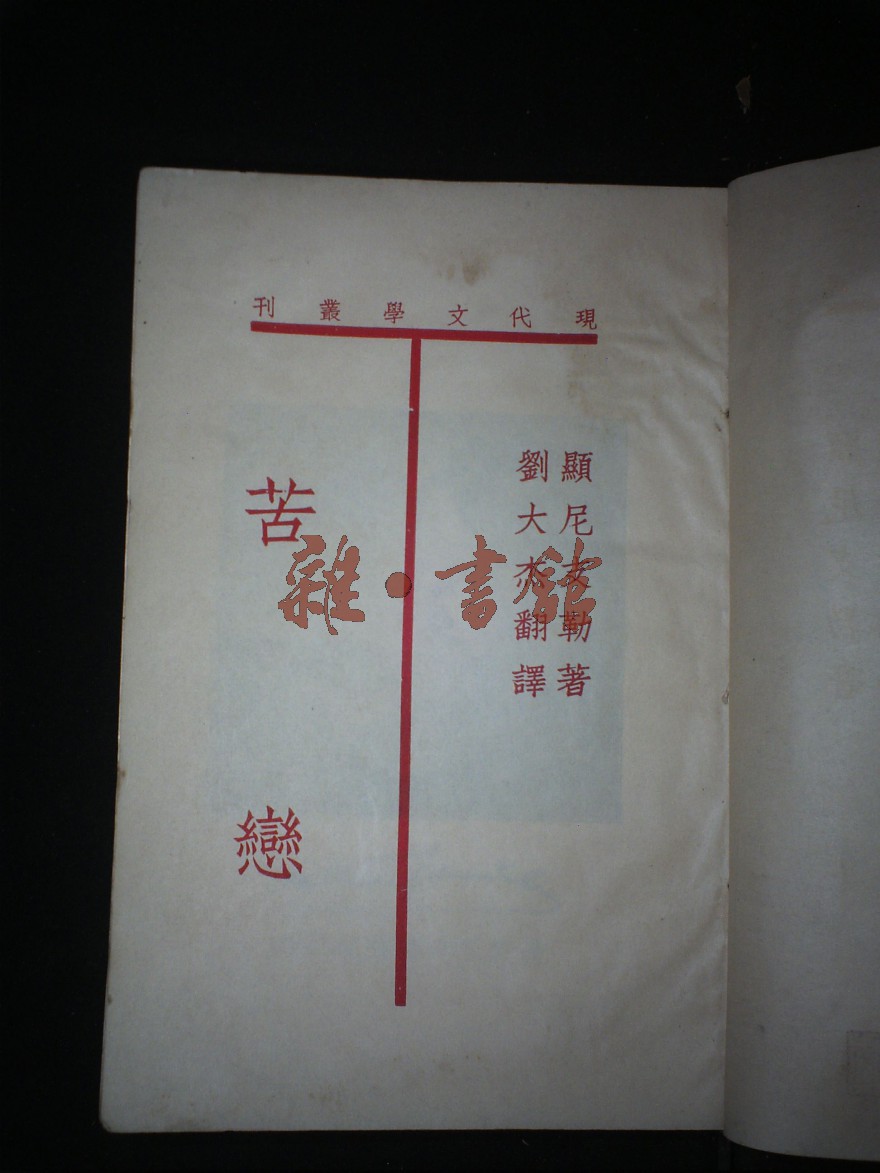 現代文學叢刊
顯尼支勒著
劉大杰翻譯
苦戀
雜·書館